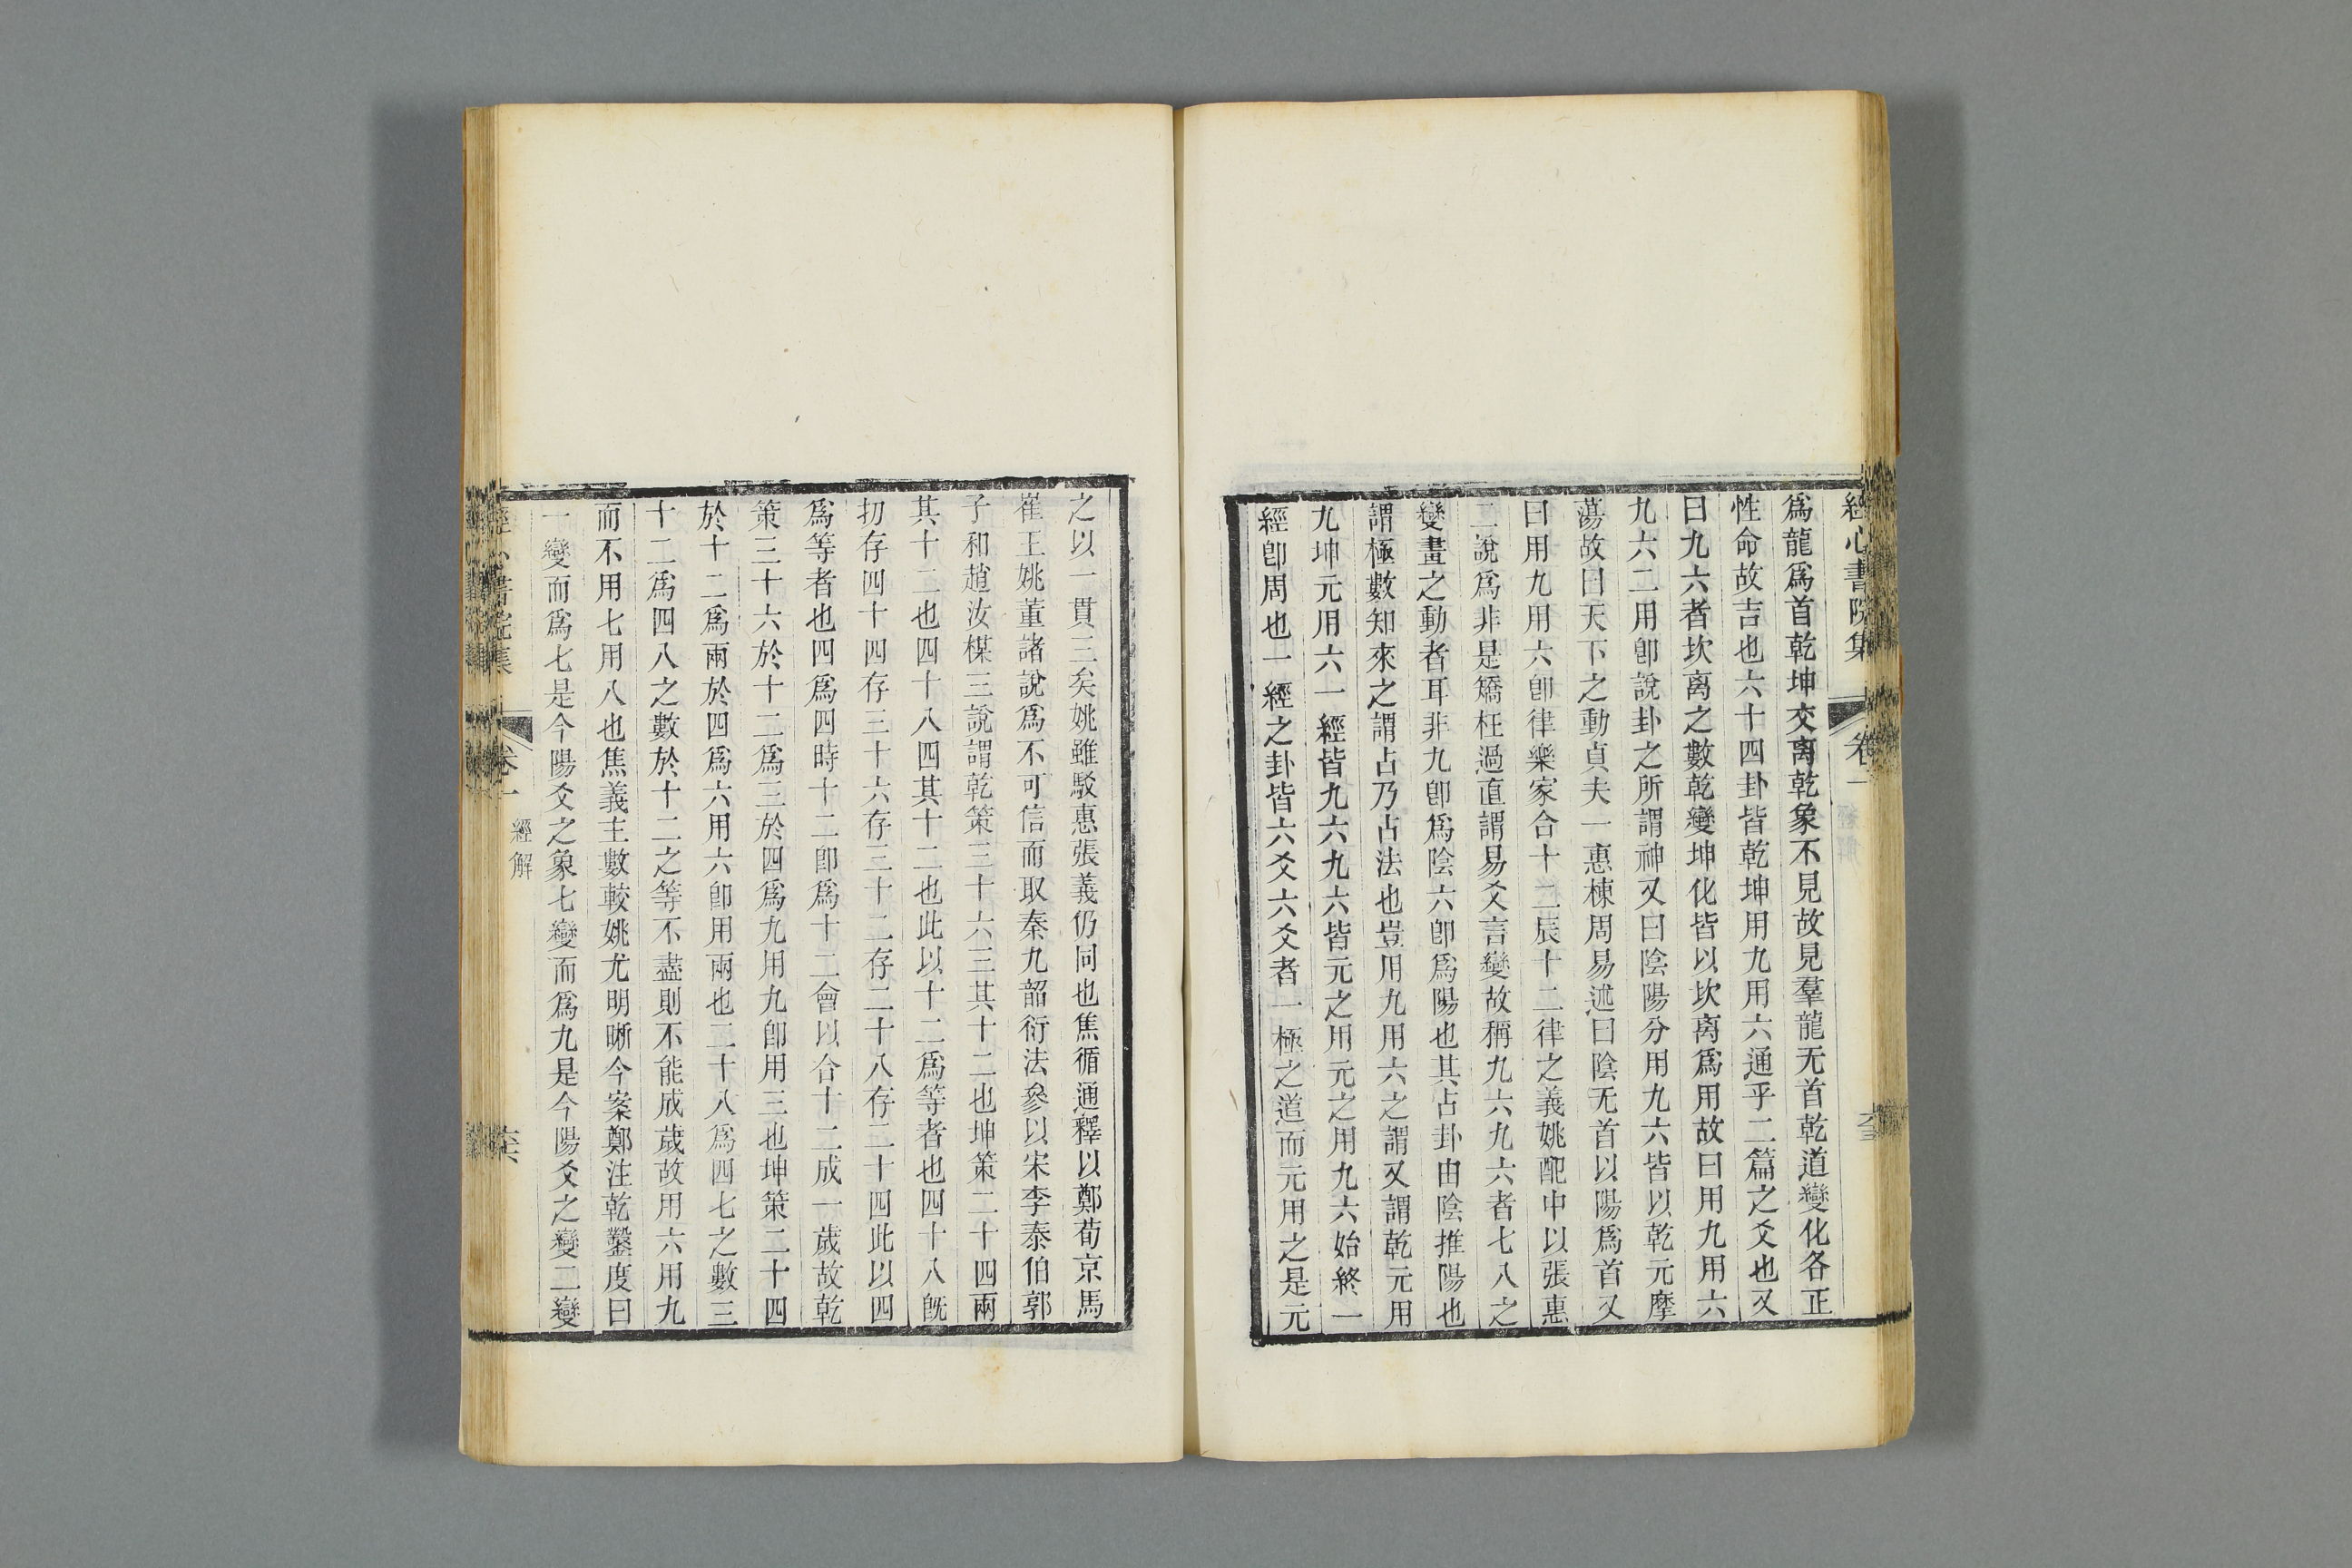 經心書院集 卷一
爲龍爲首乾坤交离乾象不見故見羣龍无首乾道變化各正
性命故吉也六十四卦皆乾坤用九用六通乎二篇之爻也又
曰九六者坎离之數乾變坤化皆以坎离爲用故曰用九用六
九六二用卽說卦之所謂神又曰陰陽分用九六皆以乾元摩
蕩故曰天下之動貞夫一惠棟周易述曰陰无首以陽爲首又
曰用九用六卽律樂家合十二辰十二律之義姚配中以張惠
二說爲非是矯枉過直謂易爻言變故稱九六九六者七八之
變畫之動者耳非九卽爲陰六卽爲陽也其占卦由陰推陽也
謂極數知來之謂占乃占法也豈用九用六之謂又謂乾元用
九坤元用六一經皆九六九六皆元之用元之用九六始終一
經卽周也一經之卦皆六爻六爻者一極之道而元用之是元
之以一貫三矣姚雖駁惠張義仍同也焦循通釋以鄭荀京馬
崔王姚董諸說爲不可信而取秦九韶衍法參以宋李泰伯郭
子和趙汝楳三說謂乾策三十六三其十二也坤策二十四兩
其十二也四十八四其十二也此以十二爲等者也四十八旣
扐存四十四存三十六存三十二存二十八存二十四此以四
爲等者也四爲四時十二卽爲十二會以合十二成一歲故乾
策三十六於十二爲三於四爲九用九卽用三也坤策二十四
於十二爲兩於四爲六用六卽用兩也二十八爲四七之數三
十二爲四八之數於十二之等不盡則不能成歲故用六用九
而不用七用八也焦義主數較姚尤明晰今案鄭注乾鑿度曰
一變而爲七是今陽爻之象七變而爲九是今陽爻之變二變
經心書院集 卷一 經解